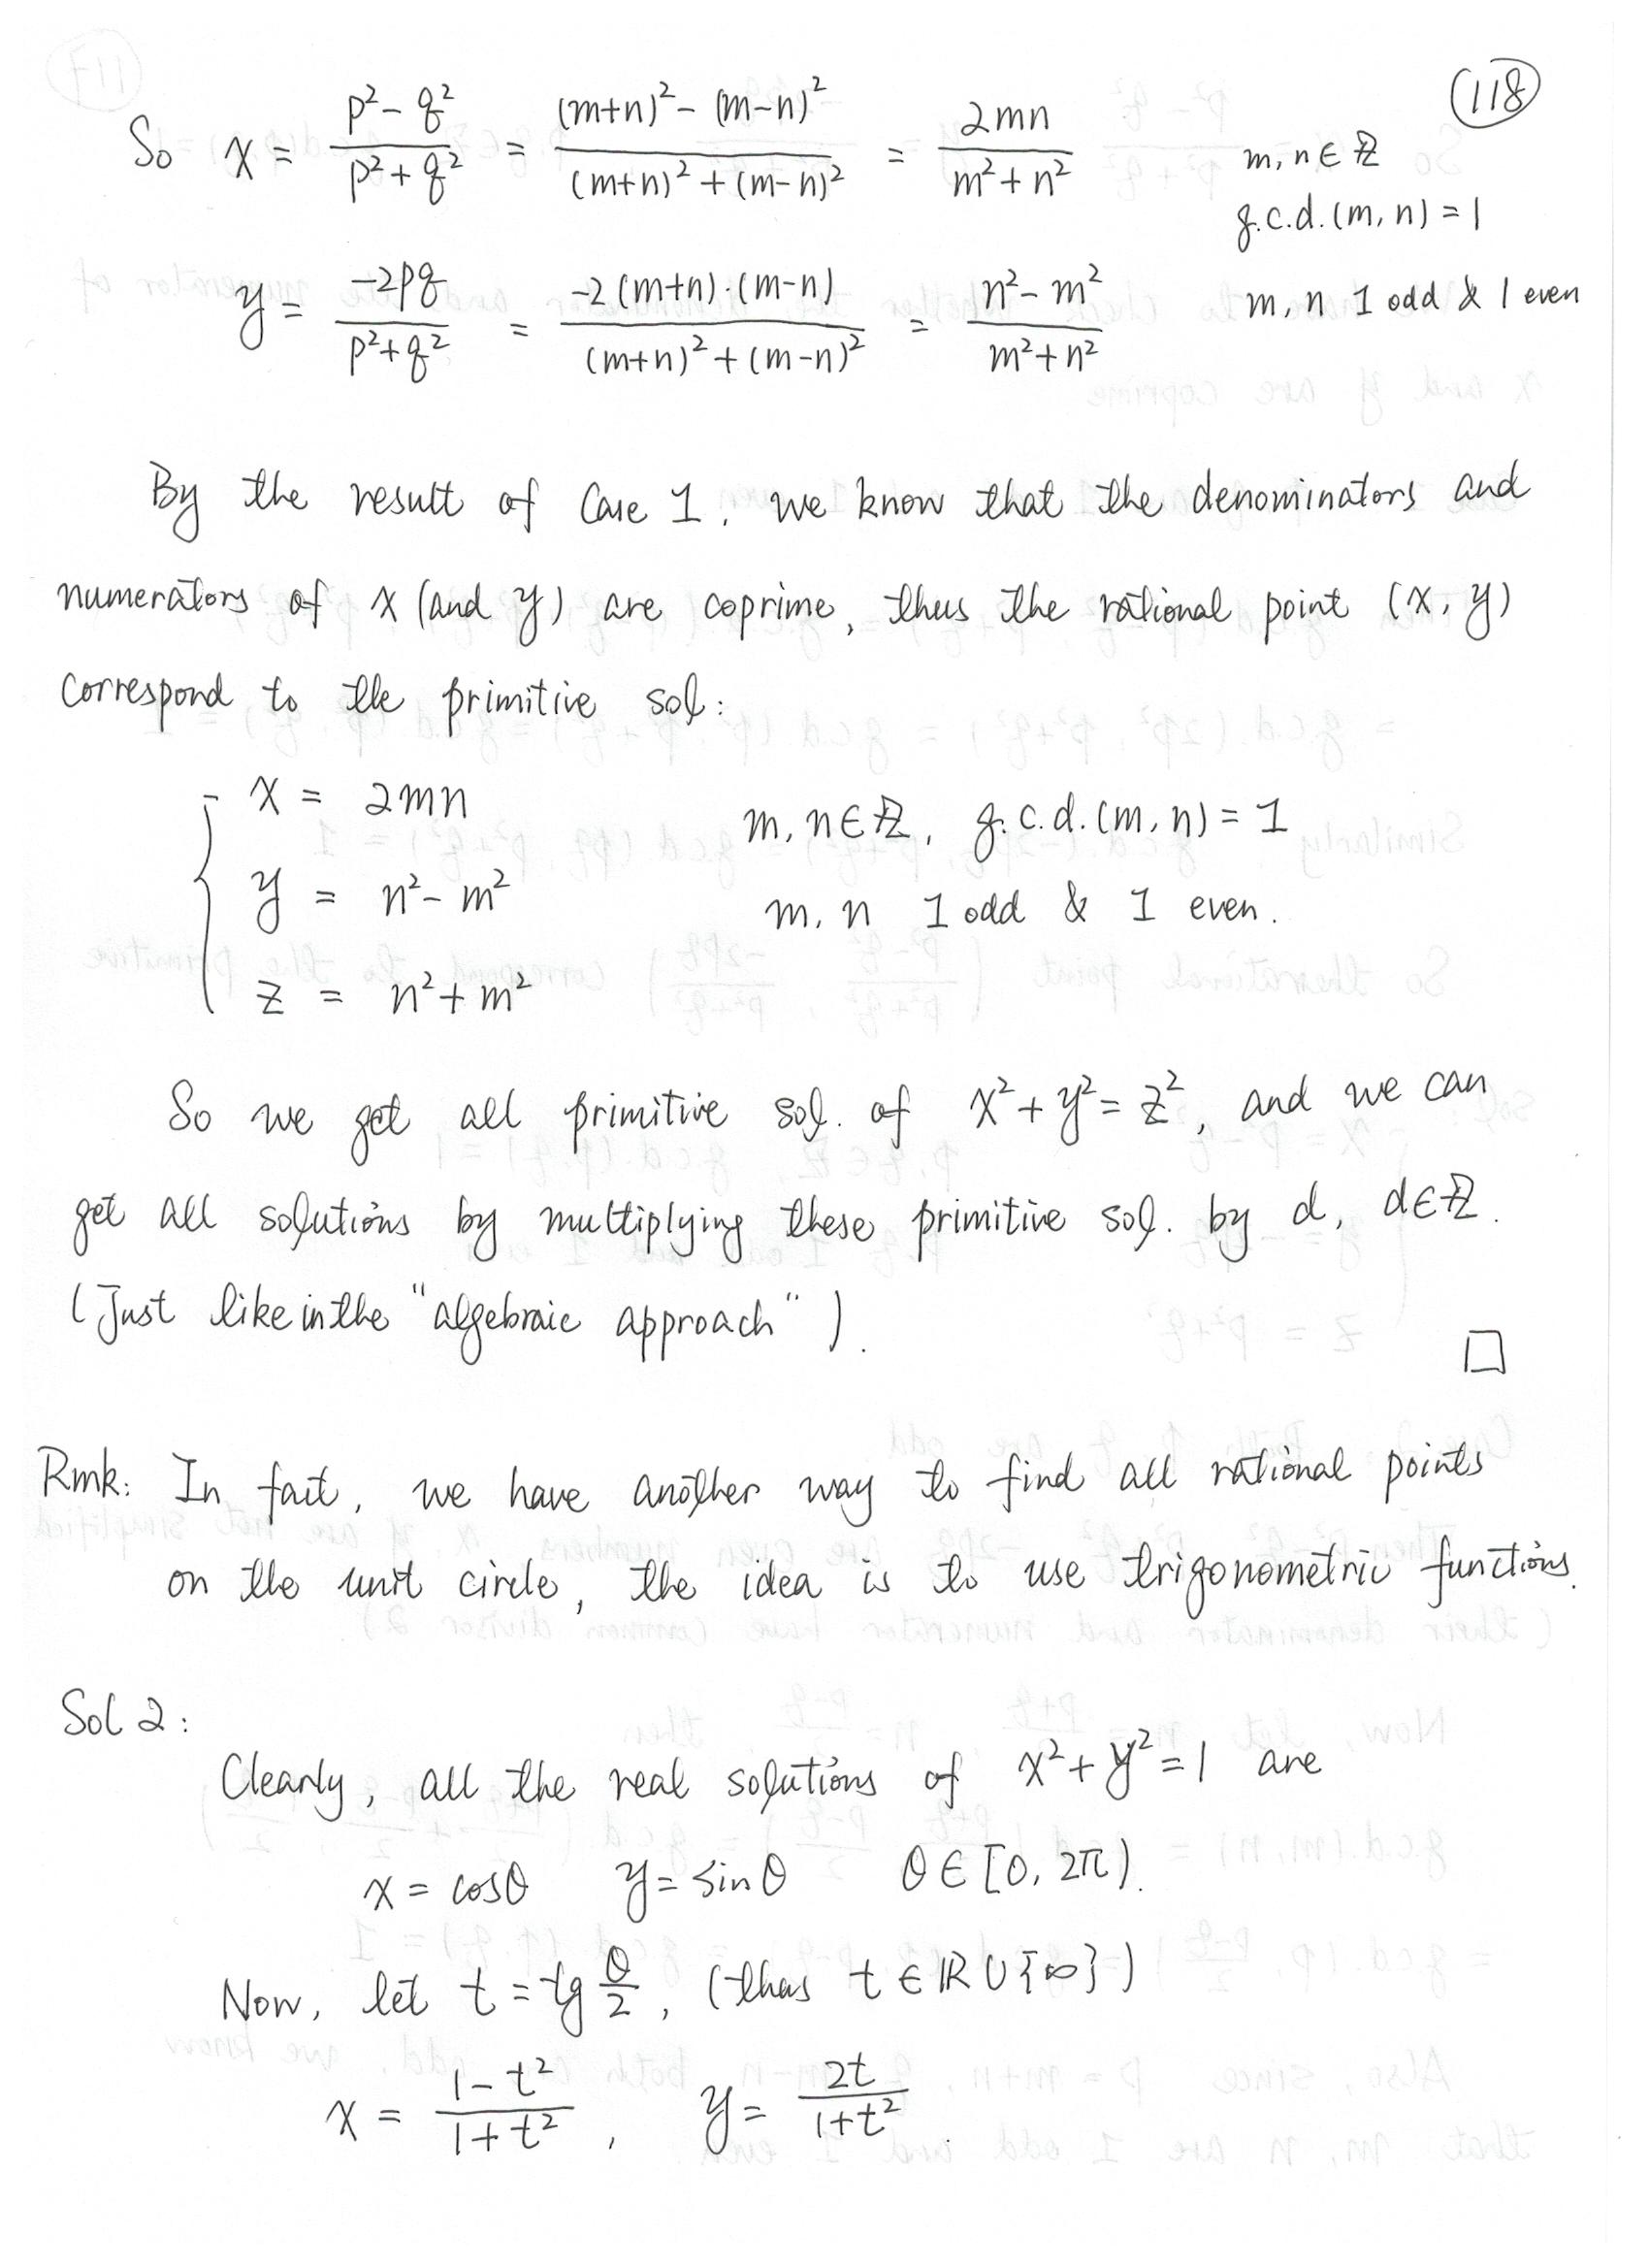 (118)
So x = (p² - q²)/(p² + q²) = ((m+n)² - (m-n)²)/((m+n)² + (m-n)²) = 2mn/(m² + n²) m, n ∈ ℤ
g.c.d. (m, n) = 1
y = -2pq/(p²+q²) = -2(m+n)·(m-n)/((m+n)² + (m-n)²) = (n² - m²)/(m² + n²) m, n 1 odd & 1 even
By the result of Case 1, we know that the denominators and
numerators of x (and y) are coprime, thus the rational point (x, y)
correspond to the primitive sol:
x = 2mn m, n ∈ ℤ, g.c.d. (m, n) = 1
y = n² - m² m, n 1 odd & 1 even.
z = n² + m²
So we get all primitive sol. of x² + y² = z², and we can
get all solutions by multiplying these primitive sol. by d, d ∈ ℤ.
(Just like in the "algebraic approach").
□
Rmk: In fact, we have another way to find all rational points
on the unit circle, the idea is to use trigonometric functions.
Sol 2:
Clearly, all the real solutions of x² + y² = 1 are
x = cosθ y = sinθ θ ∈ [0, 2π).
Now, let t = tg θ/2, (thus t ∈ ℝ ∪ {∞})
x = (1 - t²)/(1 + t²), y = 2t/(1+t²).